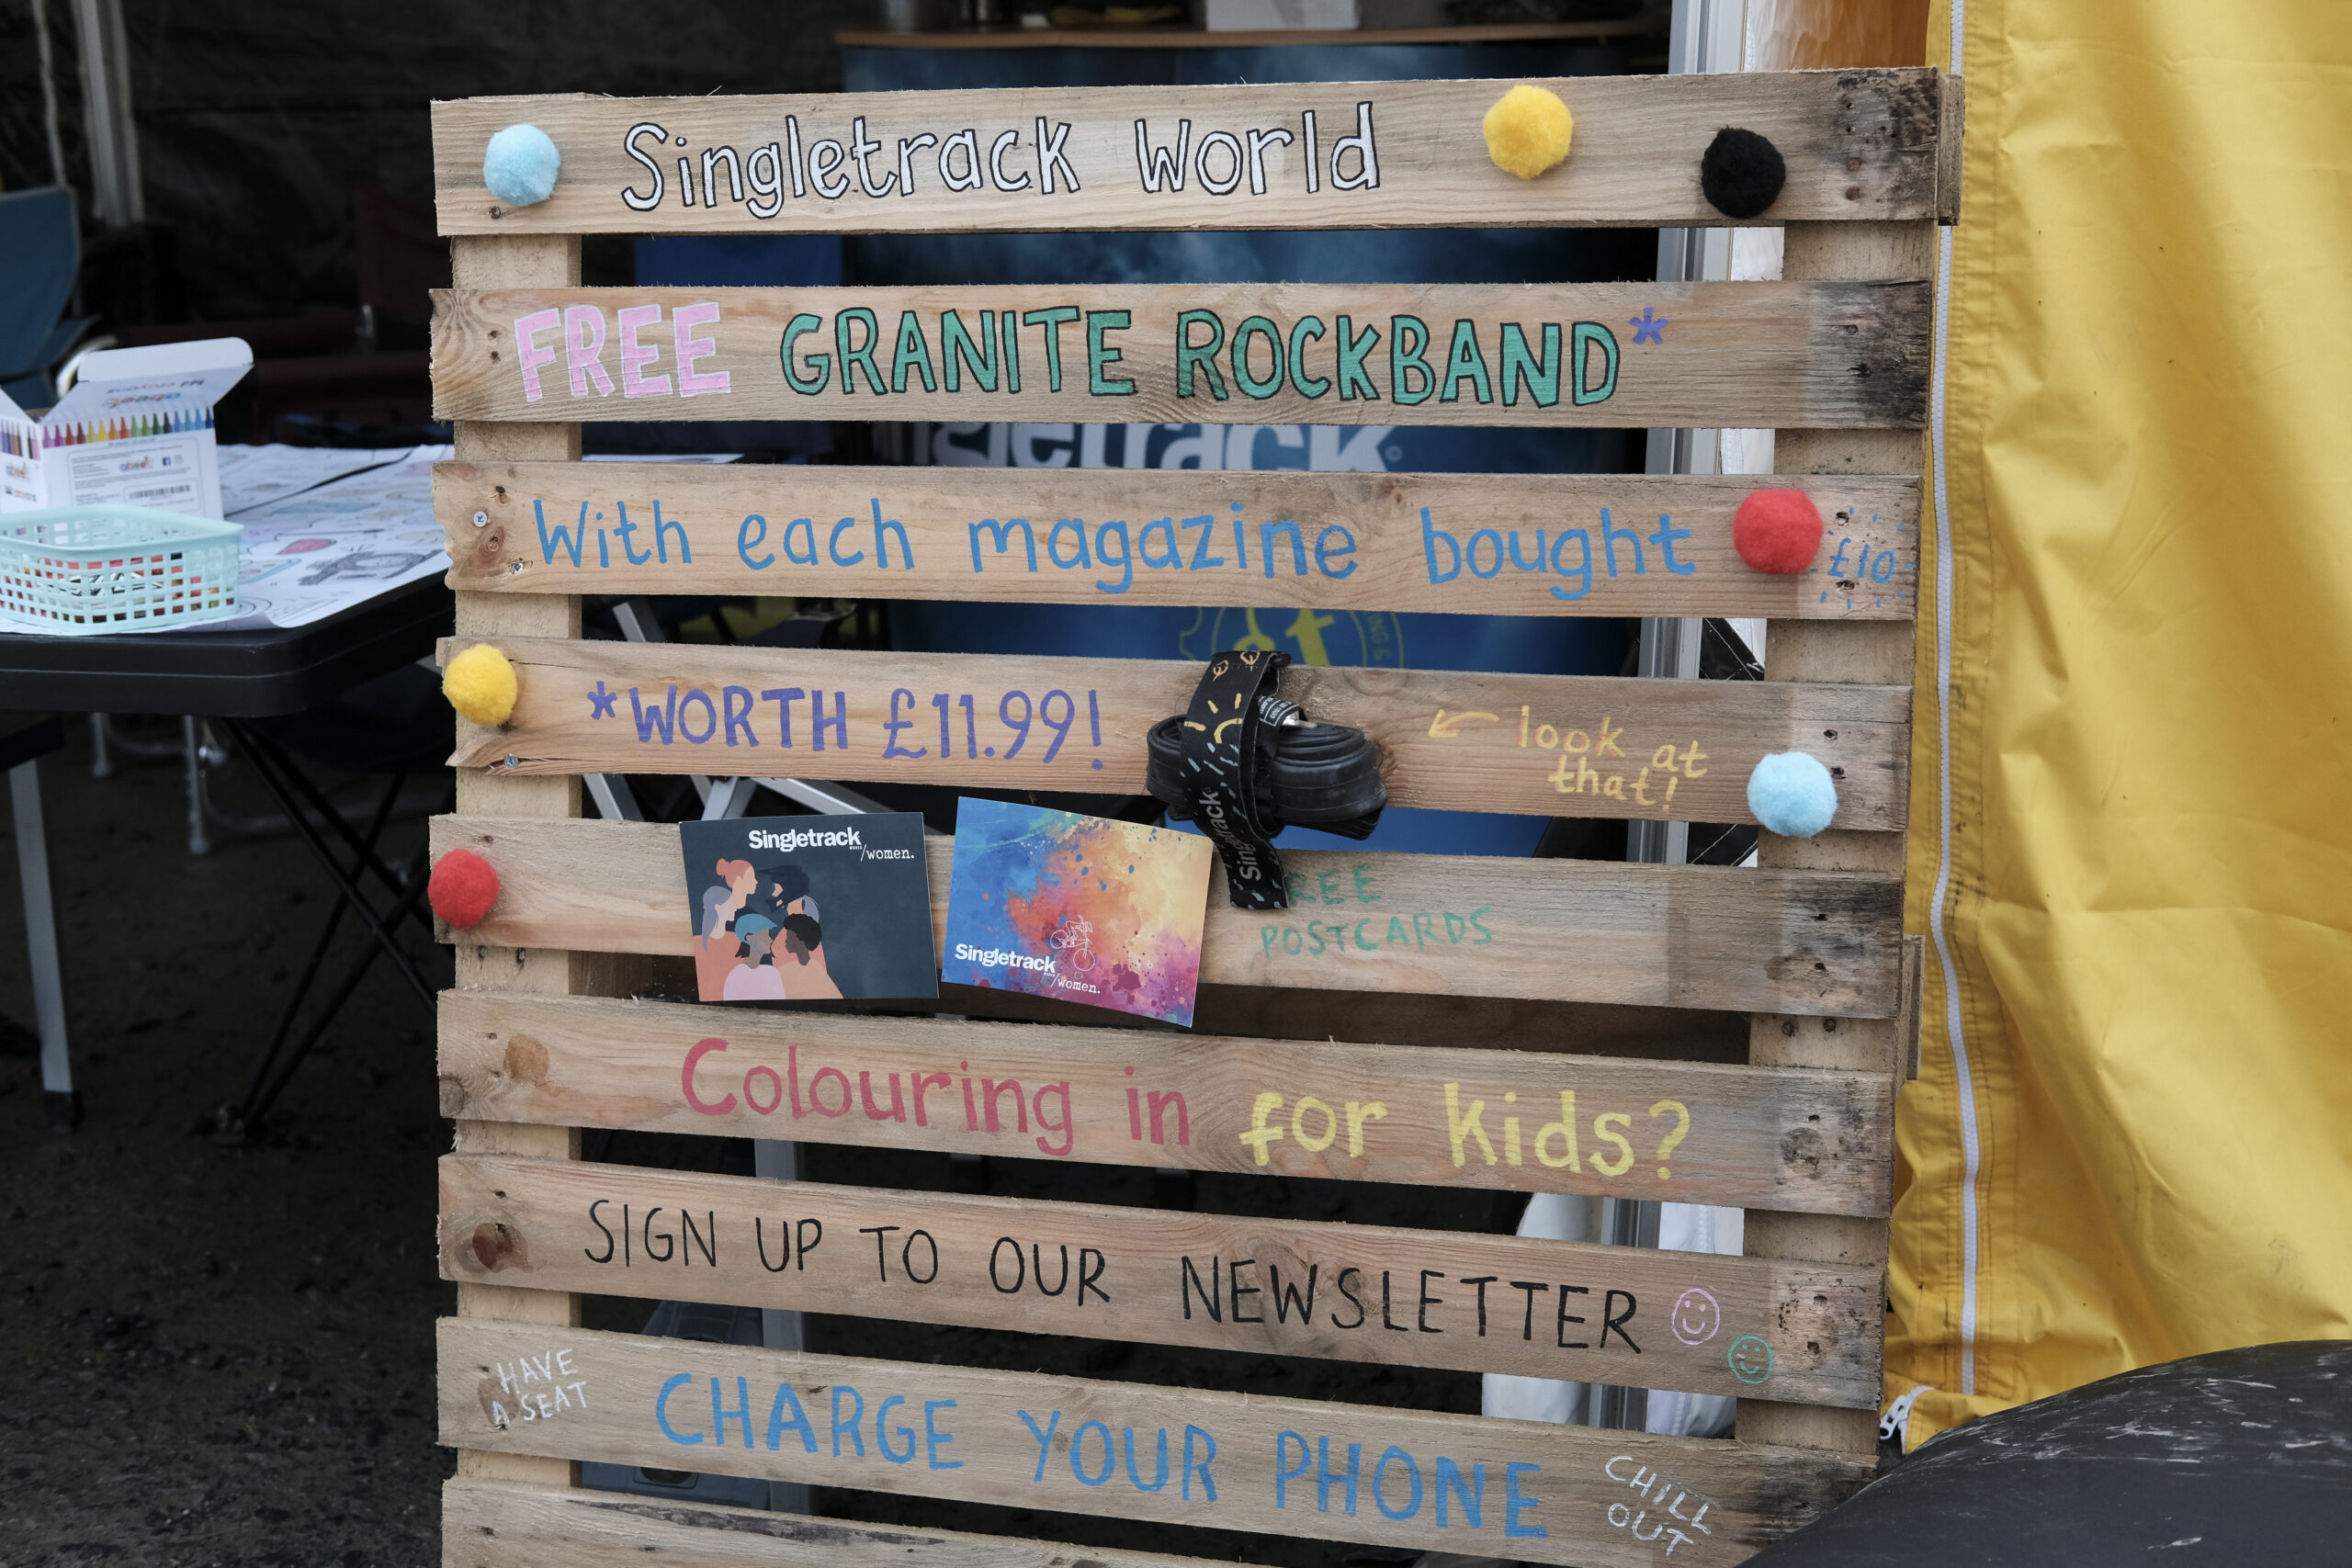 Singletrack World
FREE GRANITE ROCKBAND*
Singletrack
With each magazine bought £10
*WORTH £11.99!
look at
that!
Singletrack
Singletrack
/women.
Singletrack
/women.
POSTCARDS
Colouring in for kids?
SIGN UP TO OUR NEWSLETTER
HAVE
A SEAT
CHARGE YOUR PHONE
CHILL
OUT